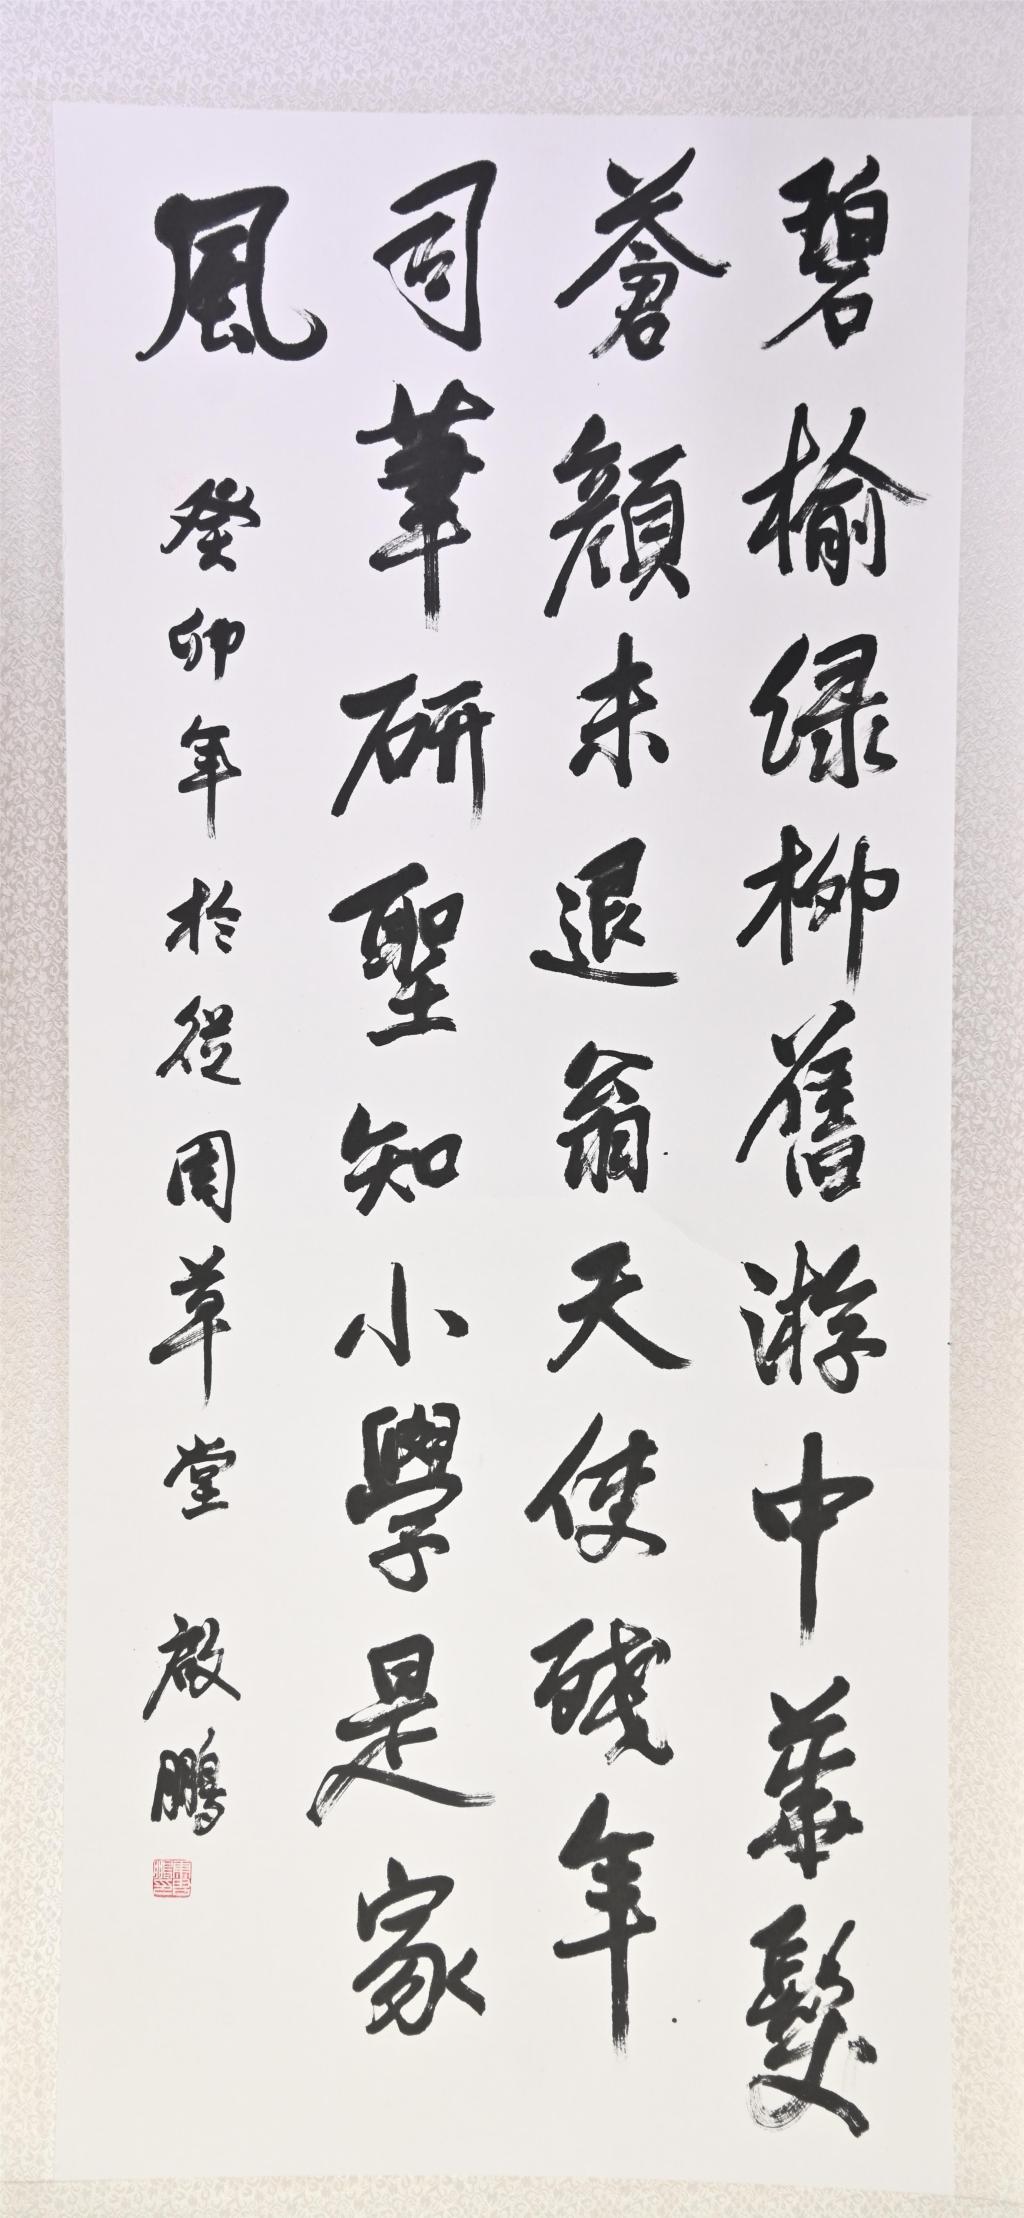 碧榆绿柳舊游中華髮
蒼顏未退翁天使殘年
司筆研聖知小學是家
風
癸卯年於從周草堂 啟鵬